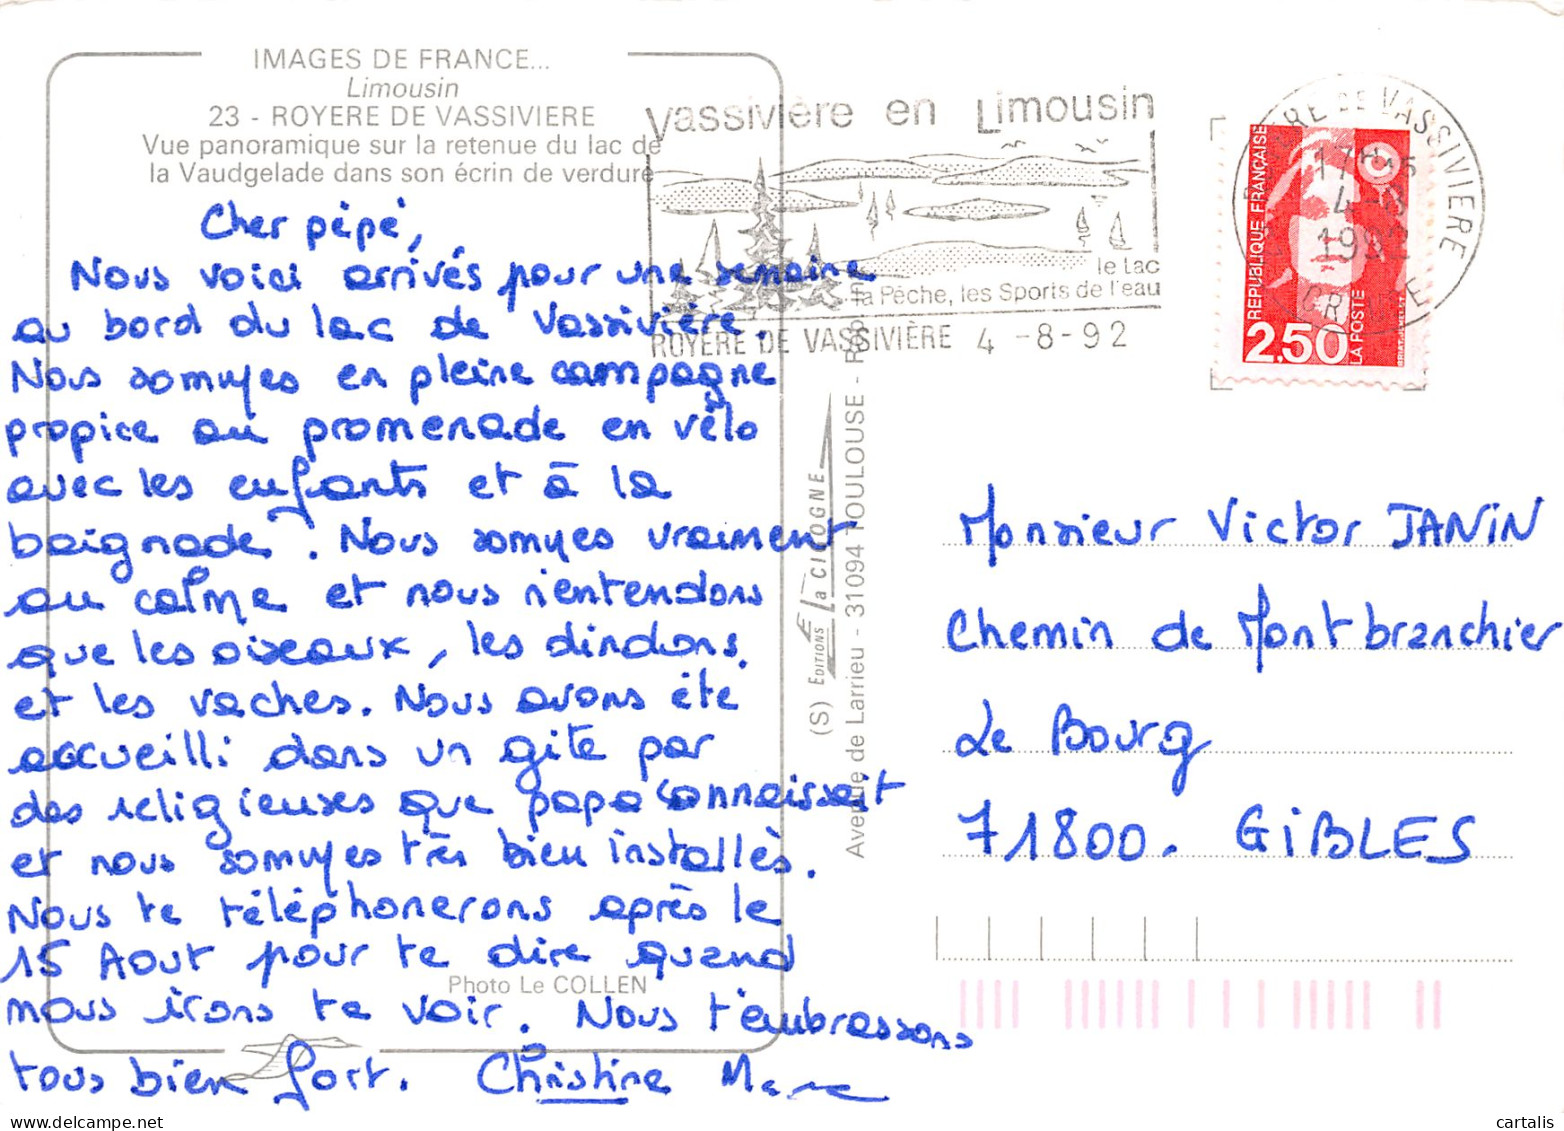 IMAGES DE FRANCE...
Limousin
23 - ROYERE DE VASSIVIERE
Vue panoramique sur la retenue du lac de
la Vaudgelade dans son écrin de verdure
Cher pépé,
Nous voici arrivés pour une semaine
au bord du lac de Vassivière.
Nous sommes en pleine campagne
propice au promenade en vélo
avec les enfants et à la
baignade. Nous sommes vraiment
au calme et nous n'entendons
que les oiseaux, les dindons,
et les vaches. Nous avons été
accueilli dans un gite par
des religieuses que papa connaissait
et nous sommes très bien installés.
Nous te téléphonerons après le
15 Aout pour te dire quand
nous irons te voir. Nous t'embrassons
tous bien fort. Christine Marc
Photo Le COLLEN
Vassivière en Limousin
le Lac
la Pêche, les Sports de l'eau
ROYERE DE VASSIVIÈRE 4 -8-92
(S) EDITIONS La CIGOGNE
Avenue de Larrieu - 31094 TOULOUSE -
ROYERE DE VASSIVIERE
1992
CREUSE
REPUBLIQUE FRANÇAISE
2,50
LA POSTE
Monsieur Victor JANIN
Chemin de Montbranchier
Le Bourg
71800. GIBLES
cartalis